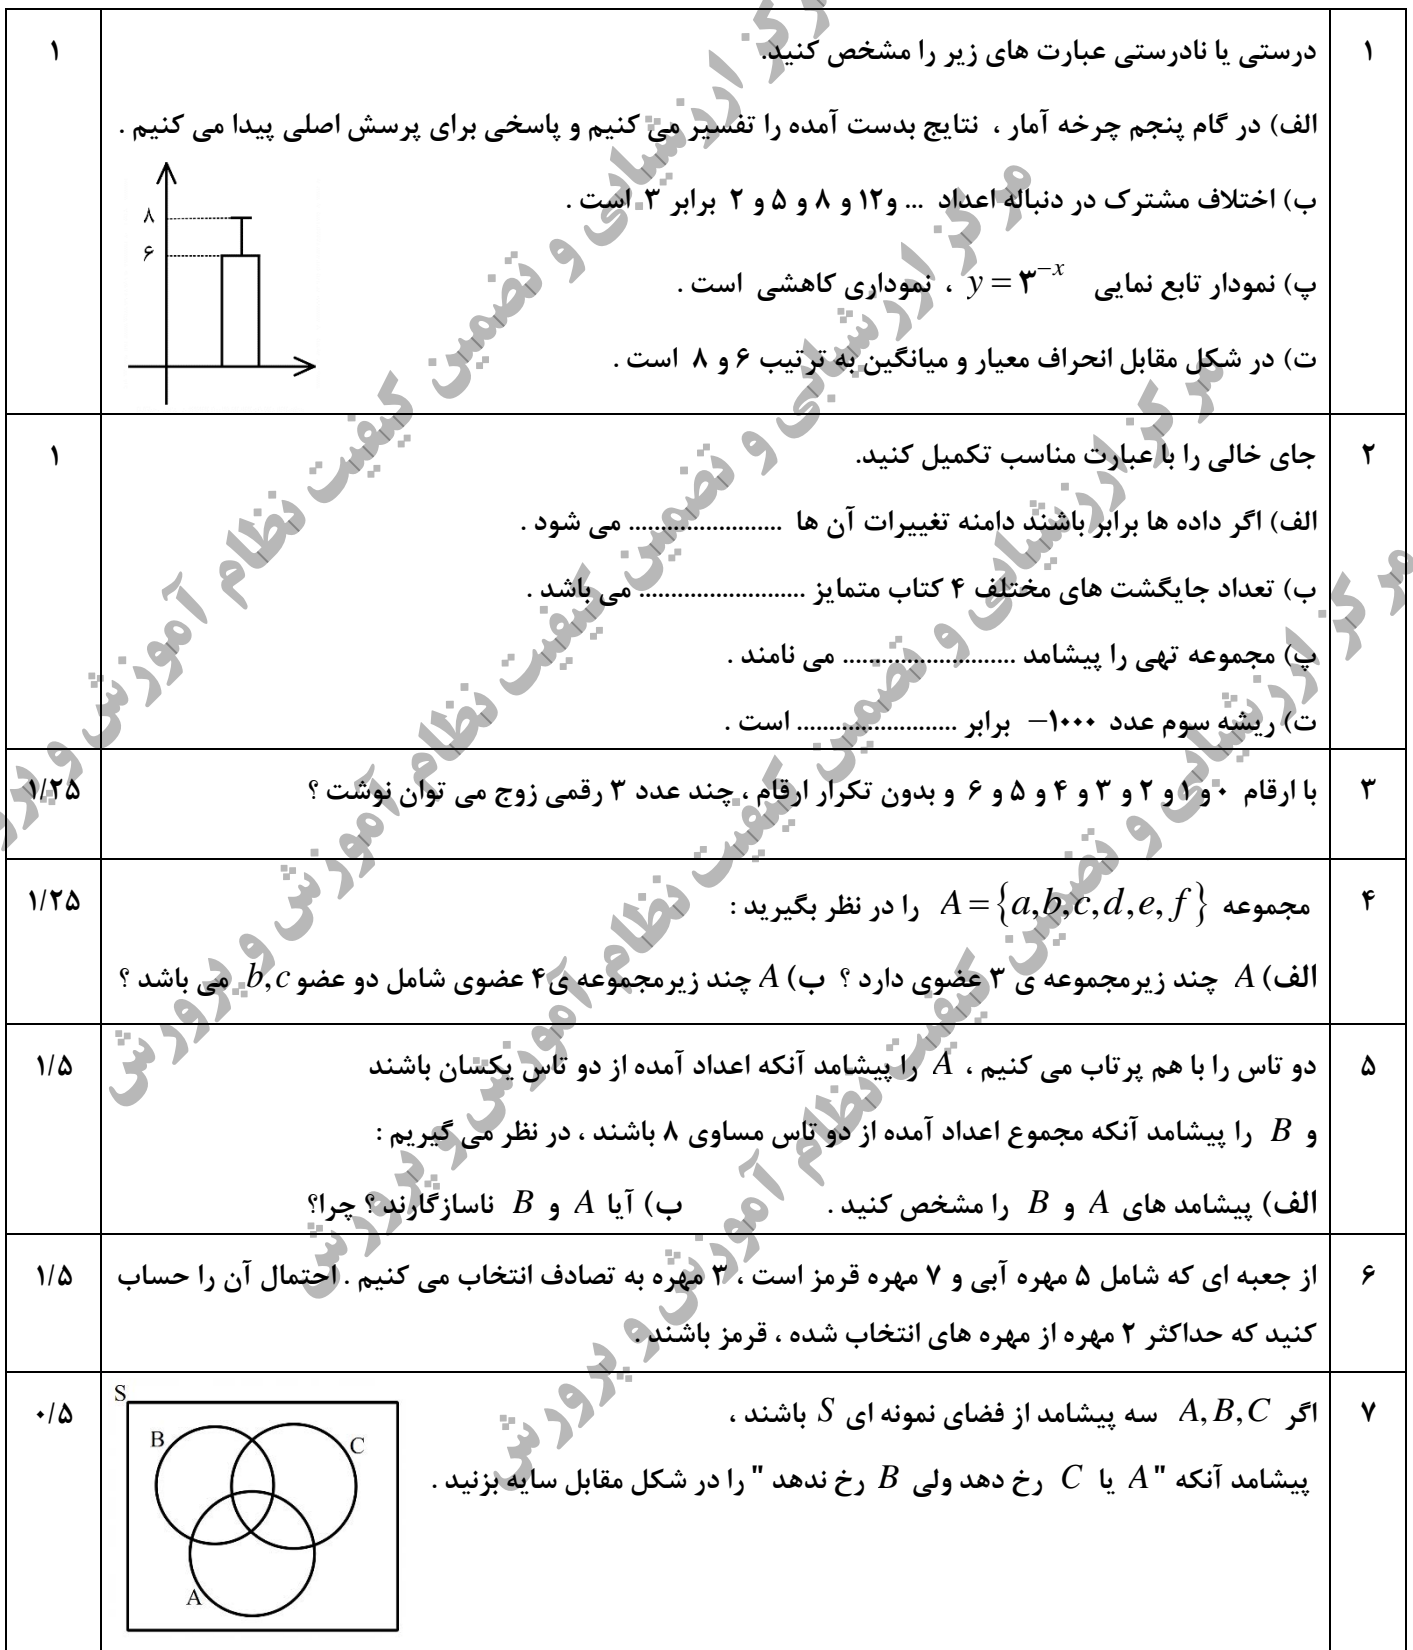 ۱ درستی یا نادرستی عبارت های زیر را مشخص کنید. ۱
الف) در گام پنجم چرخه آمار ، نتایج بدست آمده را تفسیر می کنیم و پاسخی برای پرسش اصلی پیدا می کنیم .
ب) اختلاف مشترک در دنباله اعداد ... و۱۲ و ۸ و ۵ و ۲ برابر ۳ است .
پ) نمودار تابع نمایی y = ۳^{-x} ، نموداری کاهشی است .
ت) در شکل مقابل انحراف معیار و میانگین به ترتیب ۶ و ۸ است .
۸
۶
۲ جای خالی را با عبارت مناسب تکمیل کنید. ۱
الف) اگر داده ها برابر باشند دامنه تغییرات آن ها ........................ می شود .
ب) تعداد جایگشت های مختلف ۴ کتاب متمایز .......................... می باشد .
پ) مجموعه تهی را پیشامد ........................... می نامند .
ت) ریشه سوم عدد ۱۰۰۰− برابر ......................... است .
۳ با ارقام ۰ و ۱ و ۲ و ۳ و ۴ و ۵ و ۶ و بدون تکرار ارقام ، چند عدد ۳ رقمی زوج می توان نوشت ؟ ۱/۲۵
۴ مجموعه A = {a,b,c,d,e,f} را در نظر بگیرید : ۱/۲۵
الف) A چند زیرمجموعه ی ۳ عضوی دارد ؟ ب) A چند زیرمجموعه ی۴ عضوی شامل دو عضو b,c می باشد ؟
۵ دو تاس را با هم پرتاب می کنیم ، A را پیشامد آنکه اعداد آمده از دو تاس یکسان باشند ۱/۵
و B را پیشامد آنکه مجموع اعداد آمده از دو تاس مساوی ۸ باشند ، در نظر می گیریم :
الف) پیشامد های A و B را مشخص کنید . ب) آیا A و B ناسازگارند ؟ چرا؟
۶ از جعبه ای که شامل ۵ مهره آبی و ۷ مهره قرمز است ، ۳ مهره به تصادف انتخاب می کنیم . احتمال آن را حساب ۱/۵
کنید که حداکثر ۲ مهره از مهره های انتخاب شده ، قرمز باشند .
۷ اگر A, B, C سه پیشامد از فضای نمونه ای S باشند ، ۰/۵
پیشامد آنکه "A یا C رخ دهد ولی B رخ ندهد " را در شکل مقابل سایه بزنید .
S
B
C
A
مرکز ارزشیابی و تضمین کیفیت نظام آموزش و پرورش
مرکز ارزشیابی و تضمین کیفیت نظام آموزش و پرورش
مرکز ارزشیابی و تضمین کیفیت نظام آموزش و پرورش
مرکز ارزشیابی و تضمین کیفیت نظام آموزش و پرورش